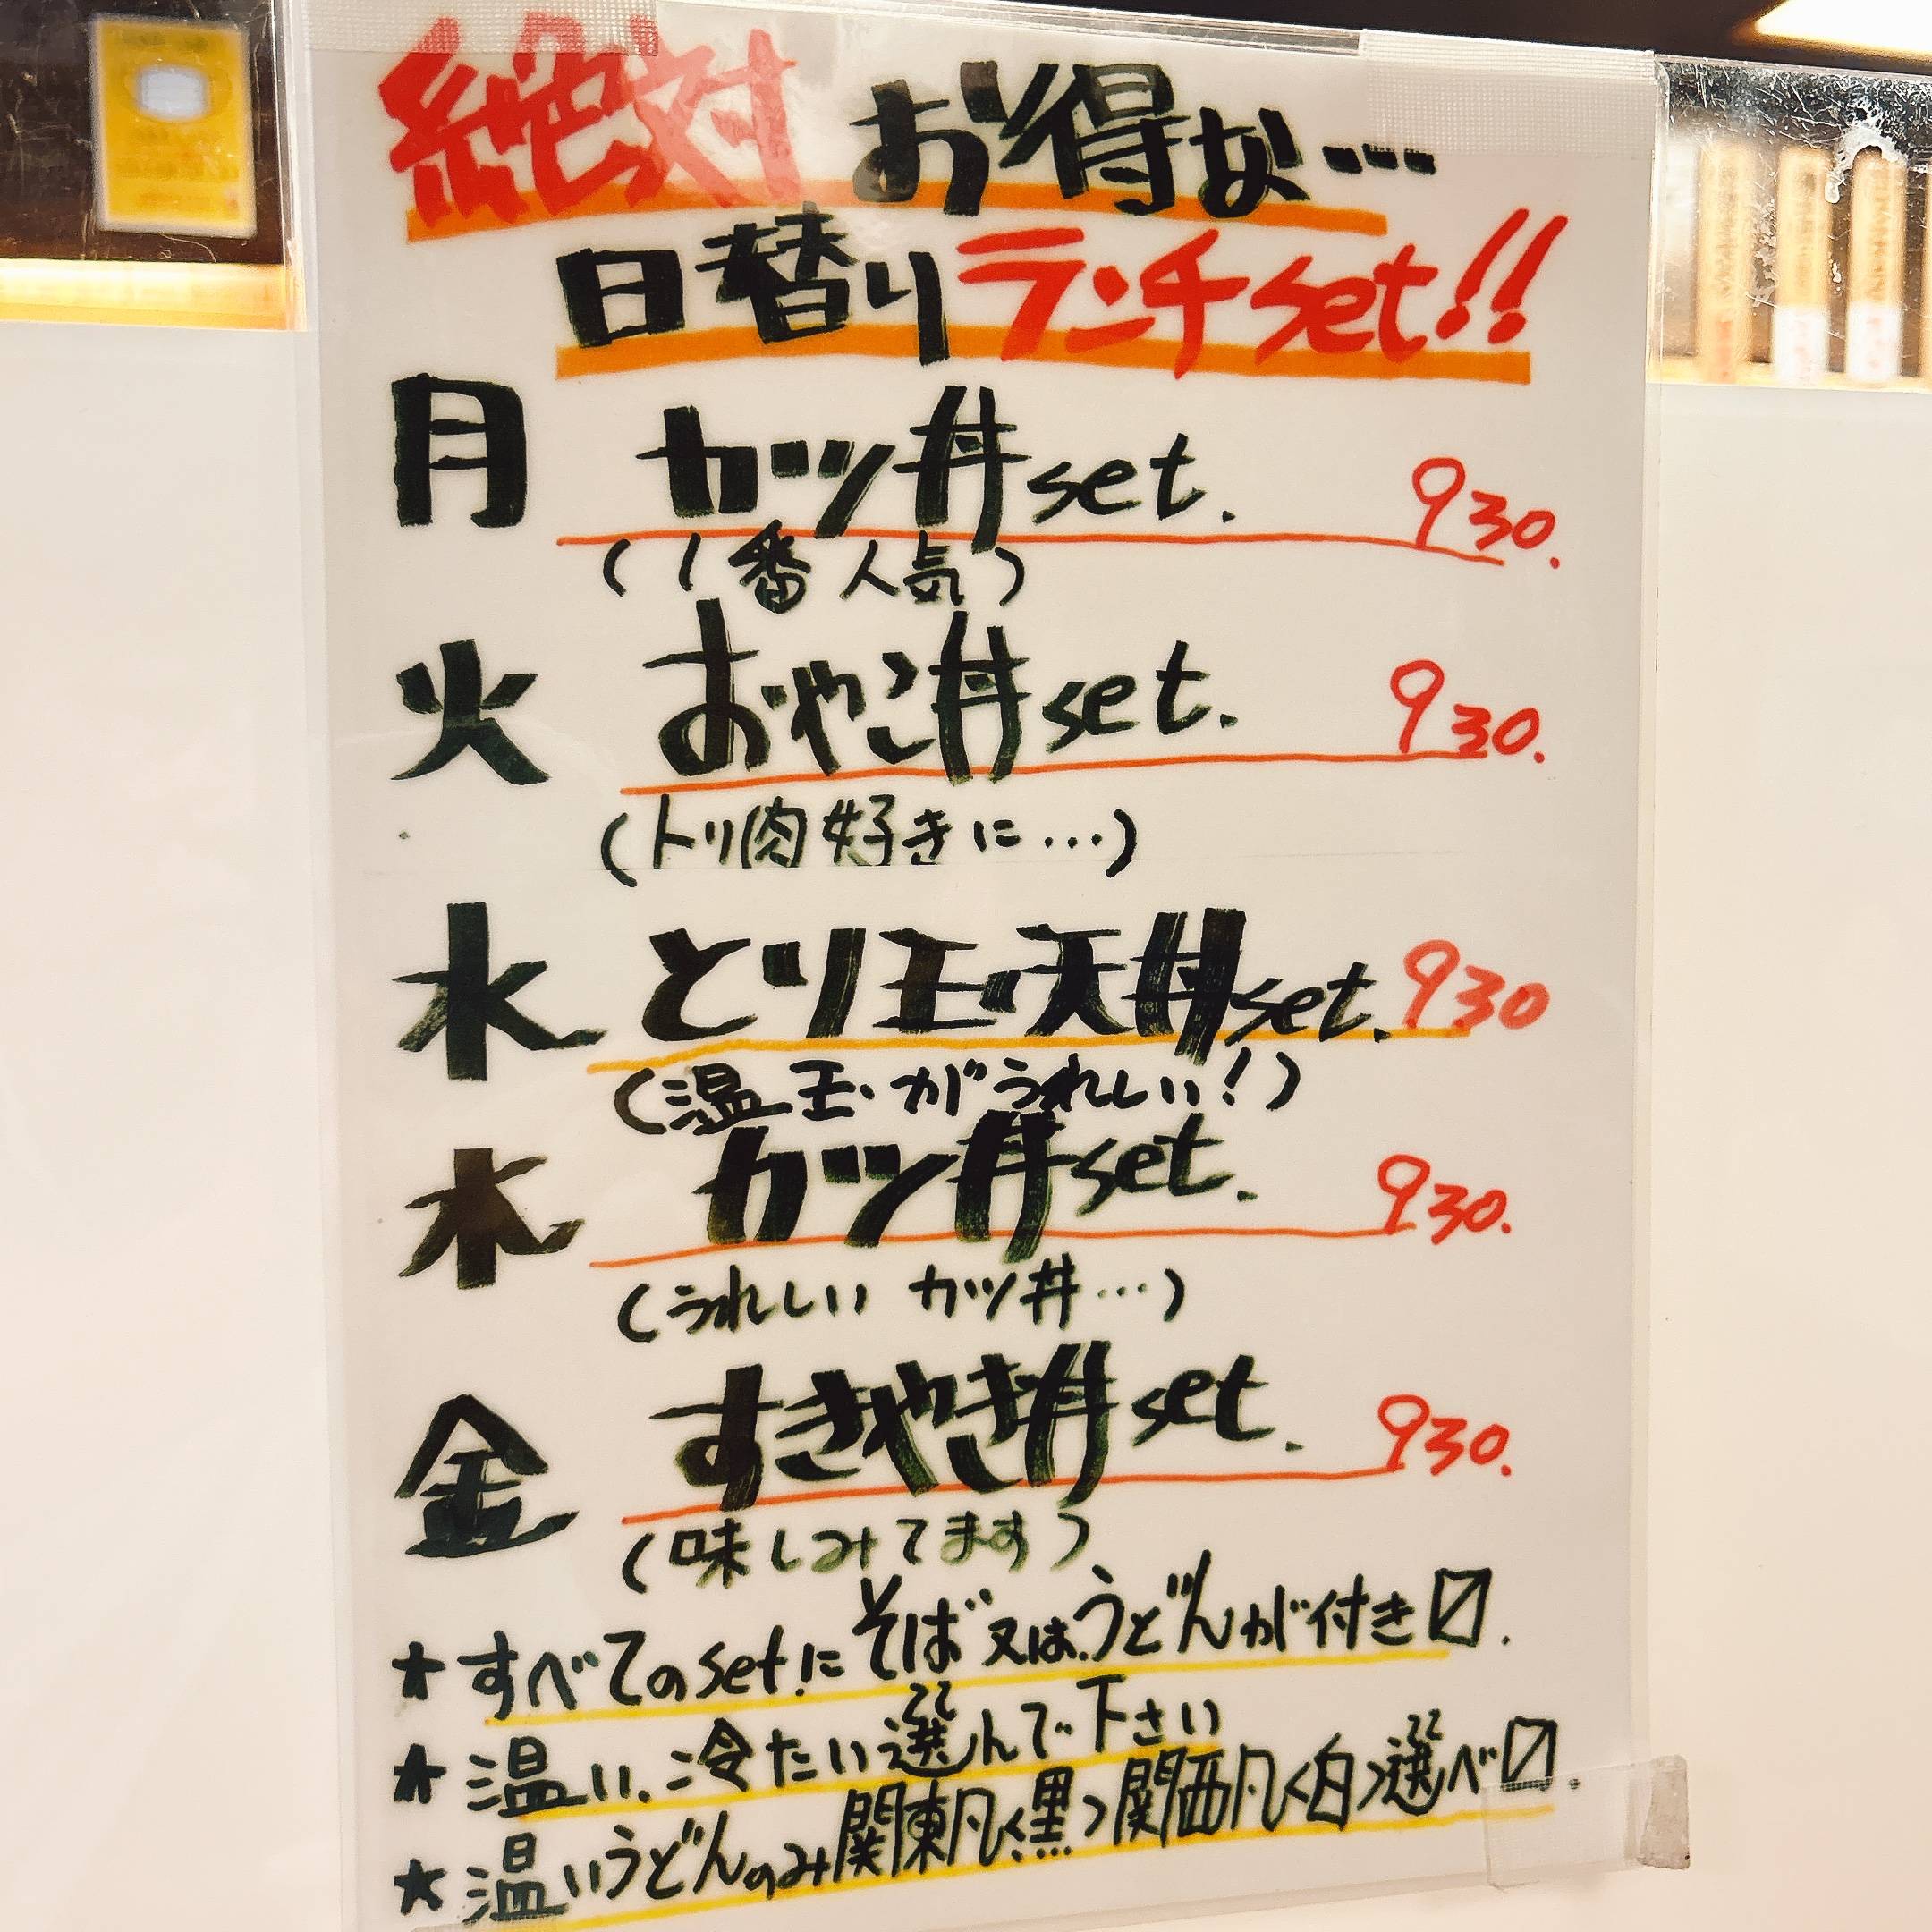 絶対お得な…
日替りランチset!!
月 カツ丼set. 930.
(1番人気)
火 おやこ丼set. 930.
(トリ肉好きに…)
水 とり玉天丼set. 930
(温玉がうれしい!)
木 カツ丼set. 930.
(うれしいカツ丼…)
金 すきやき丼set. 930.
(味しみてます)
★すべてのsetにそば又はうどんが付き〼.
★温い、冷たい選んで下さい
★温いうどんのみ関東風<黒>関西風<白>選べ〼.